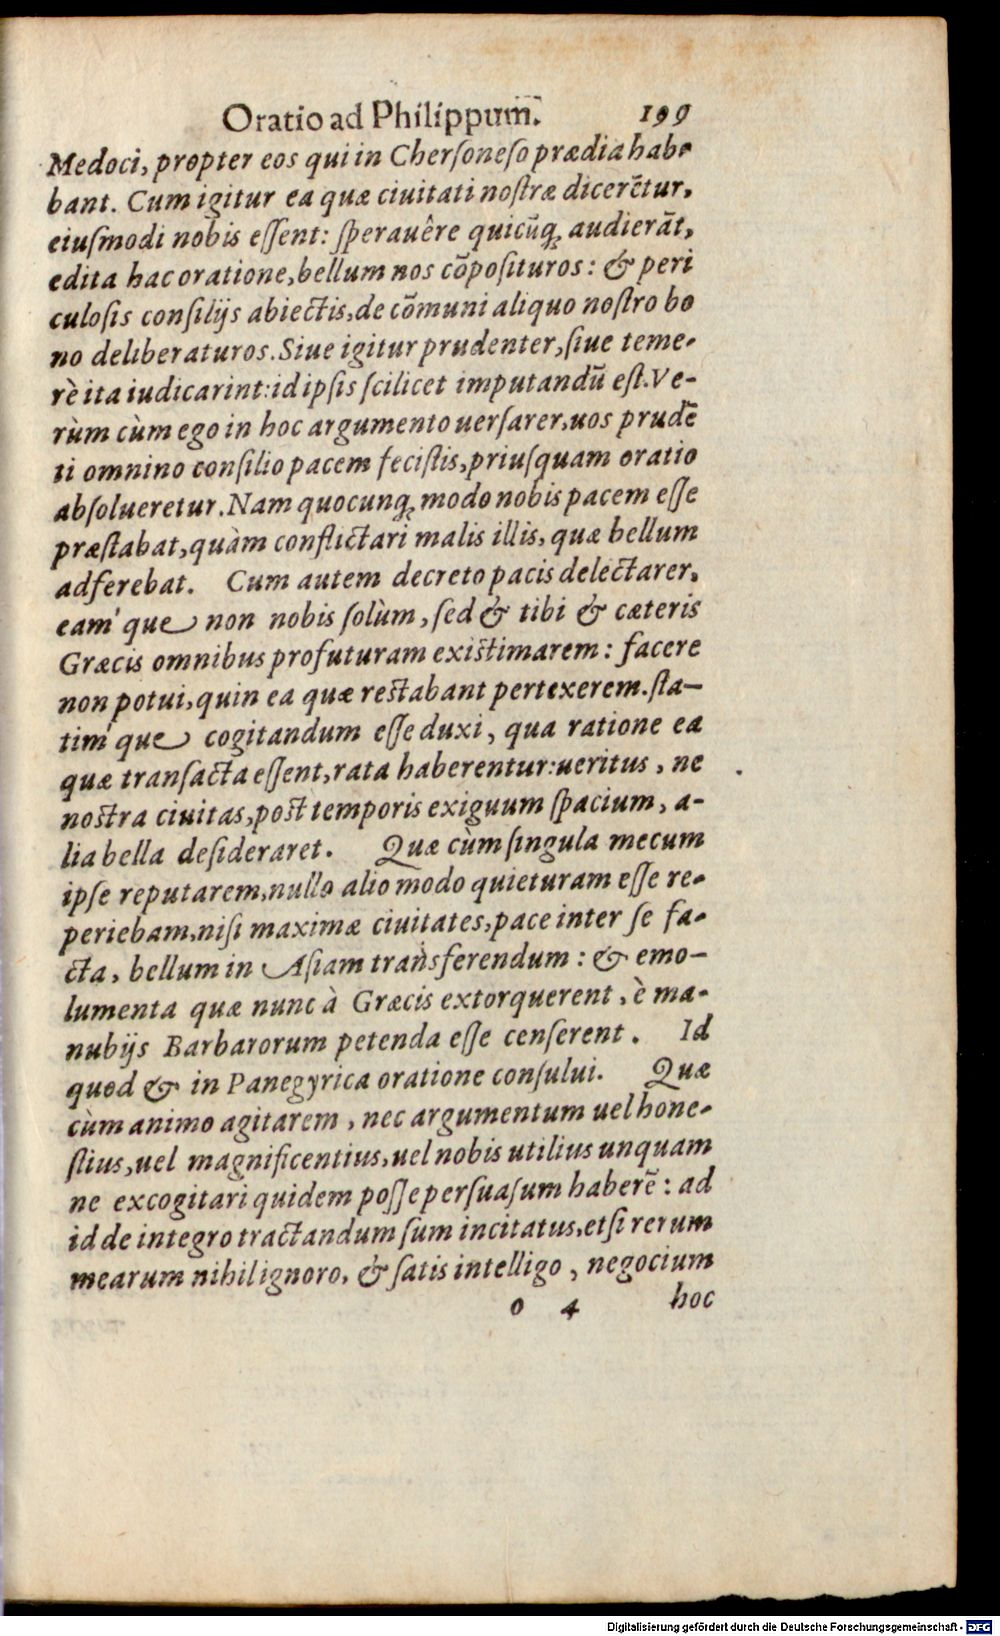 Oratio ad Philippum. 199
Medoci, propter eos qui in Chersoneso prædia habe
bant. Cum igitur ea quæ ciuitati nostræ dicerẽtur,
eiusmodi nobis essent: sperauêre quicũq; audierãt,
edita hac oratione, bellum nos cõposituros: & peri
culosis consilijs abiectis, de cõmuni aliquo nostro bo
no deliberaturos. Siue igitur prudenter, siue teme-
rè ita iudicarint: id ipsis scilicet imputandũ est. Ve-
rùm cùm ego in hoc argumento uersarer, uos prudẽ
ti omnino consilio pacem fecistis, priusquam oratio
absolueretur. Nam quocunq; modo nobis pacem esse
præstabat, quàm conflictari malis illis, quæ bellum
adferebat. Cum autem decreto pacis delectarer,
eam´que non nobis solùm, sed & tibi & cæteris
Græcis omnibus profuturam existimarem: facere
non potui, quin ea quæ restabant pertexerem. sta-
tim´que cogitandum esse duxi, qua ratione ea
quæ transacta essent, rata haberentur: ueritus, ne
nostra ciuitas, post temporis exiguum spacium, a-
lia bella desideraret. Quæ cùm singula mecum
ipse reputarem, nullo alio modo quieturam esse re-
periebam, nisi maximæ ciuitates, pace inter se fa-
cta, bellum in Asiam transferendum: & emo-
lumenta quæ nunc à Græcis extorquerent, è ma-
nubijs Barbarorum petenda esse censerent. Id
quod & in Panegyrica oratione consului. Quæ
cùm animo agitarem, nec argumentum uel hone-
stius, uel magnificentius, uel nobis utilius unquam
ne excogitari quidem posse persuasum haberẽ: ad
id de integro tractandum sum incitatus, etsi rerum
mearum nihil ignoro, & satis intelligo, negocium
o 4 hoc
Digitalisierung gefördert durch die Deutsche Forschungsgemeinschaft - DFG